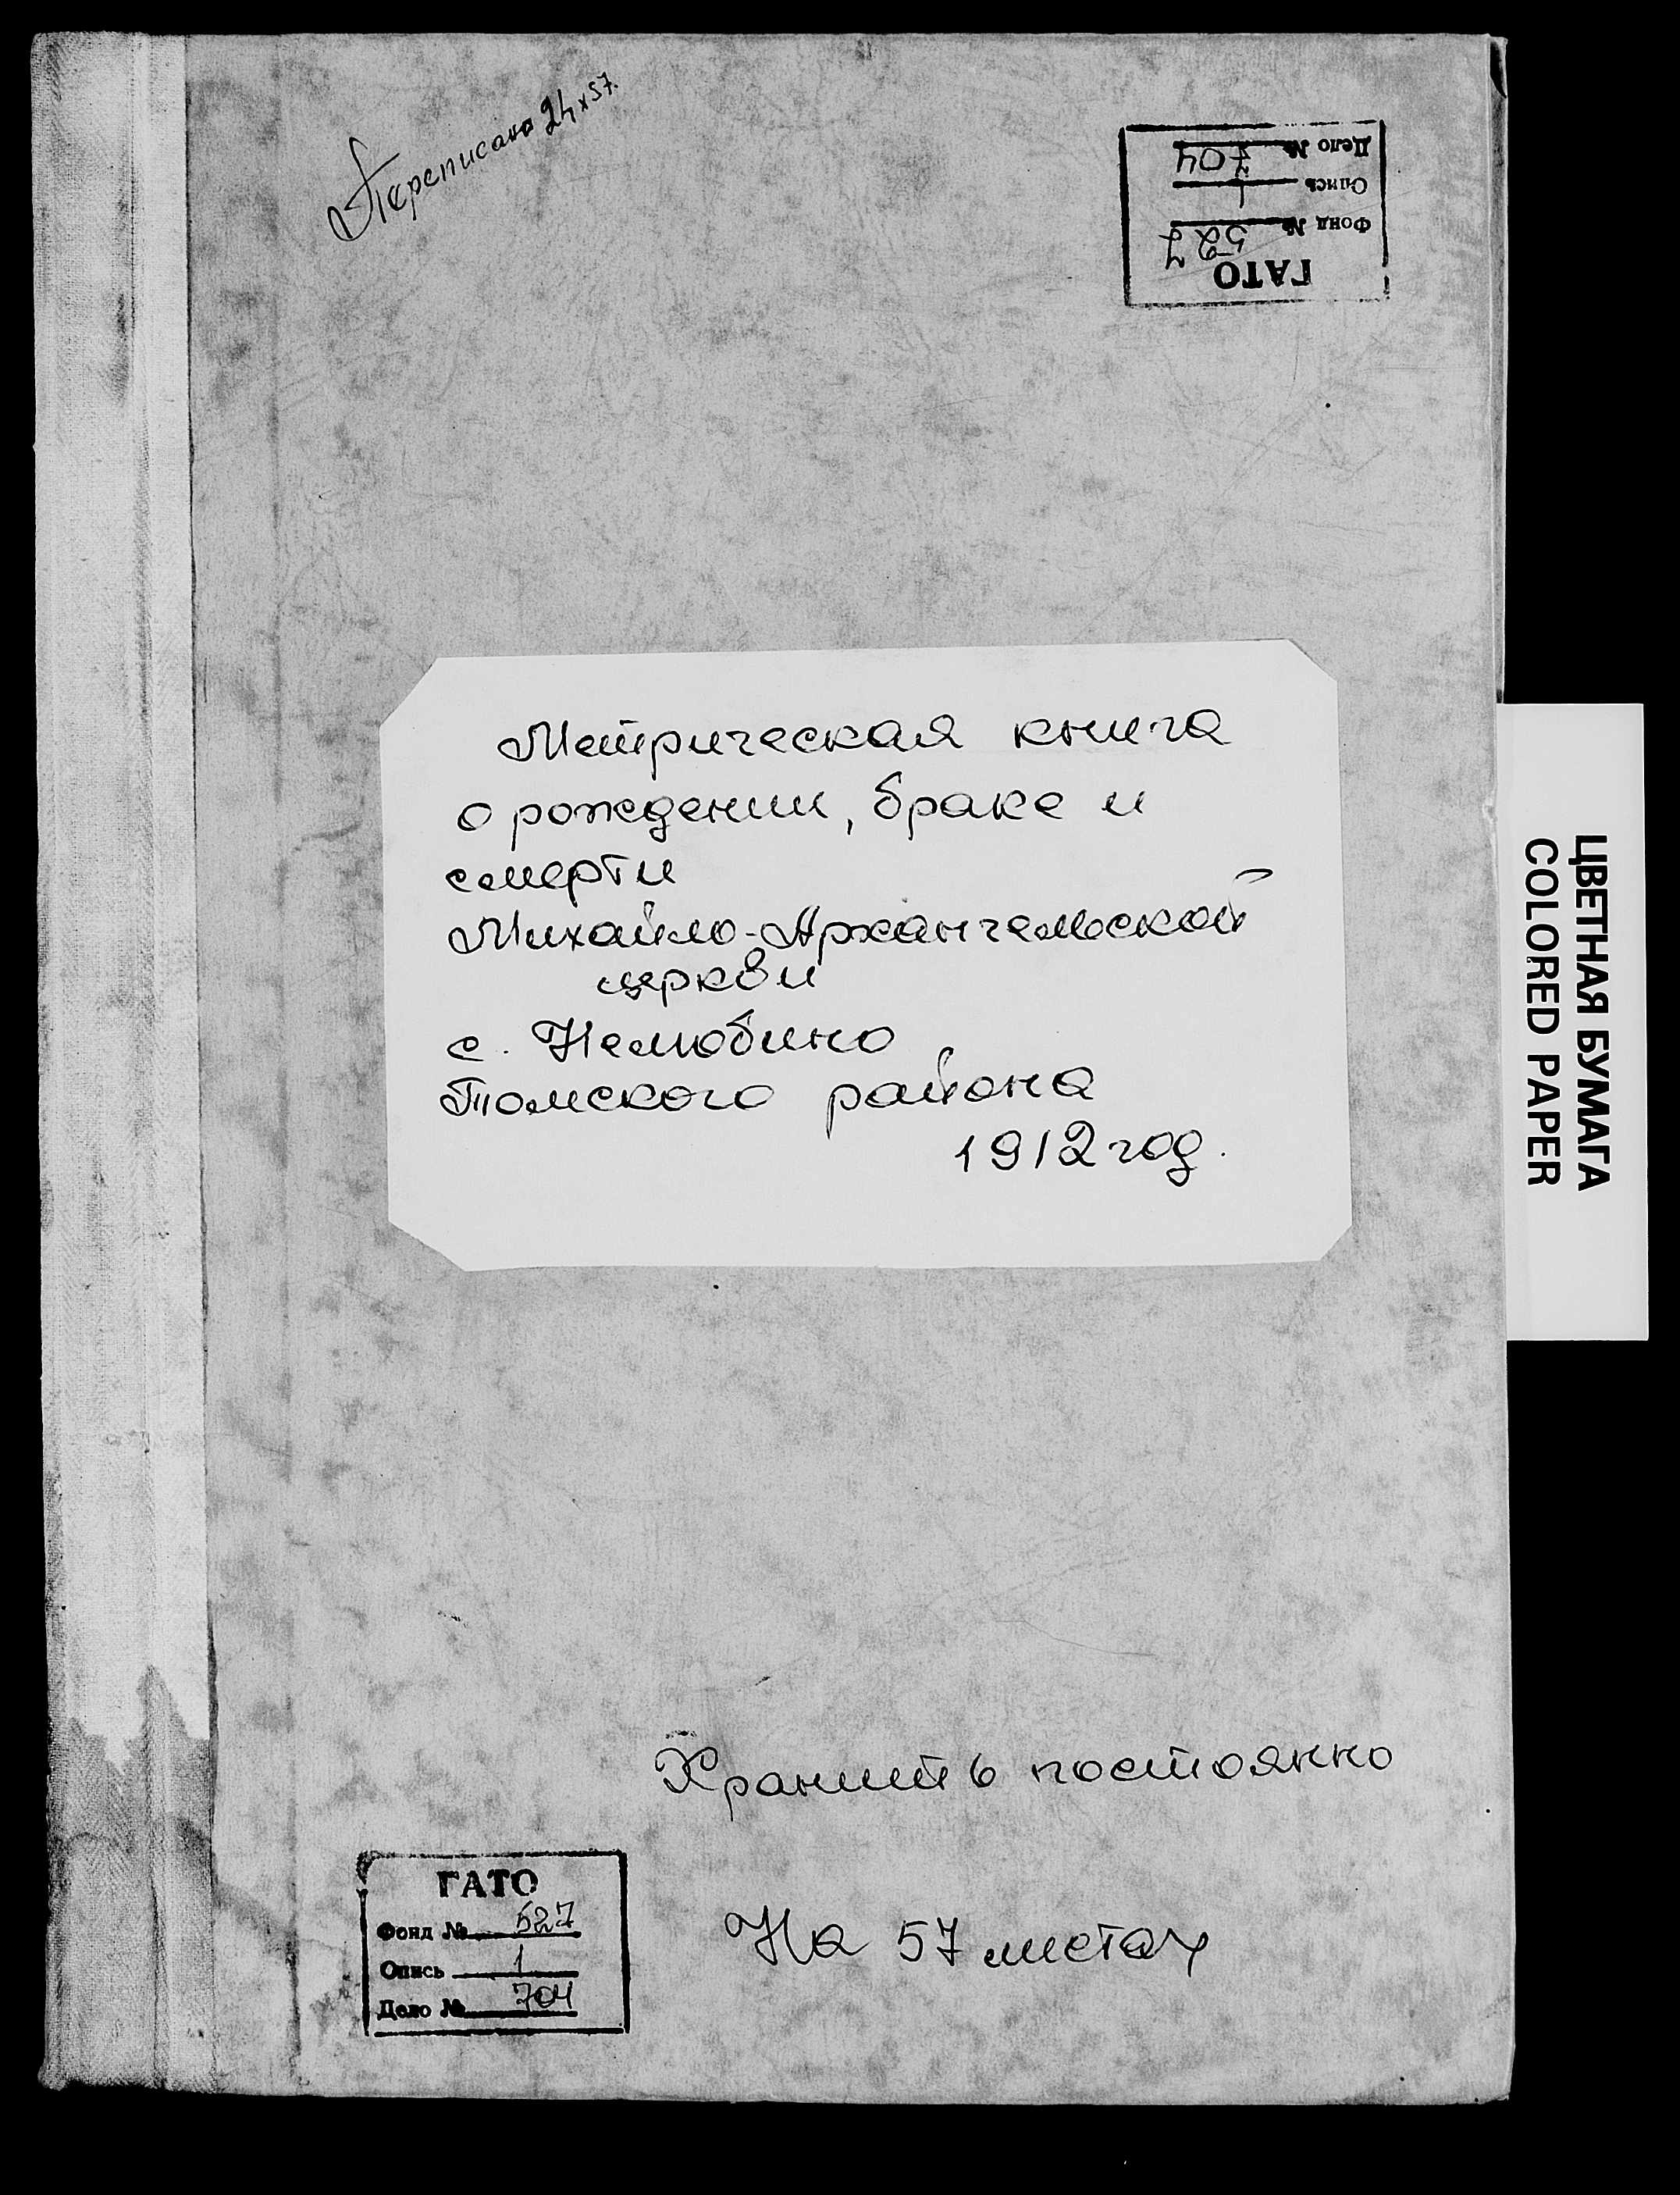 Переписано 24 х 57.
ГАТО
Фонд № 527
Опись 1
Дело № 704
Метрическая книга
о рождении, браке и
смерти
Михайло-Архангельской
церкви
с. Нелюбино
Томского района
1912 год.
ЦВЕТНАЯ БУМАГА
COLORED PAPER
Хранить постоянно
ГАТО
Фонд № 527
Опись 1
Дело № 704
На 57 листах